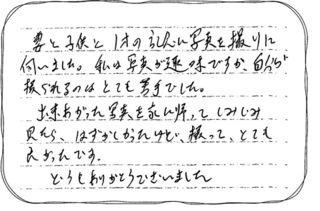 妻と子供と1才の記念に写真を撮りに
伺いました。私は写真が趣味ですが、自分が
撮られるのはとても苦手でした。
出来あがった写真を家に帰ってしみじみ
見たら、はずかしかったけど、撮って、とても
良かったです。
どうもありがとうございました